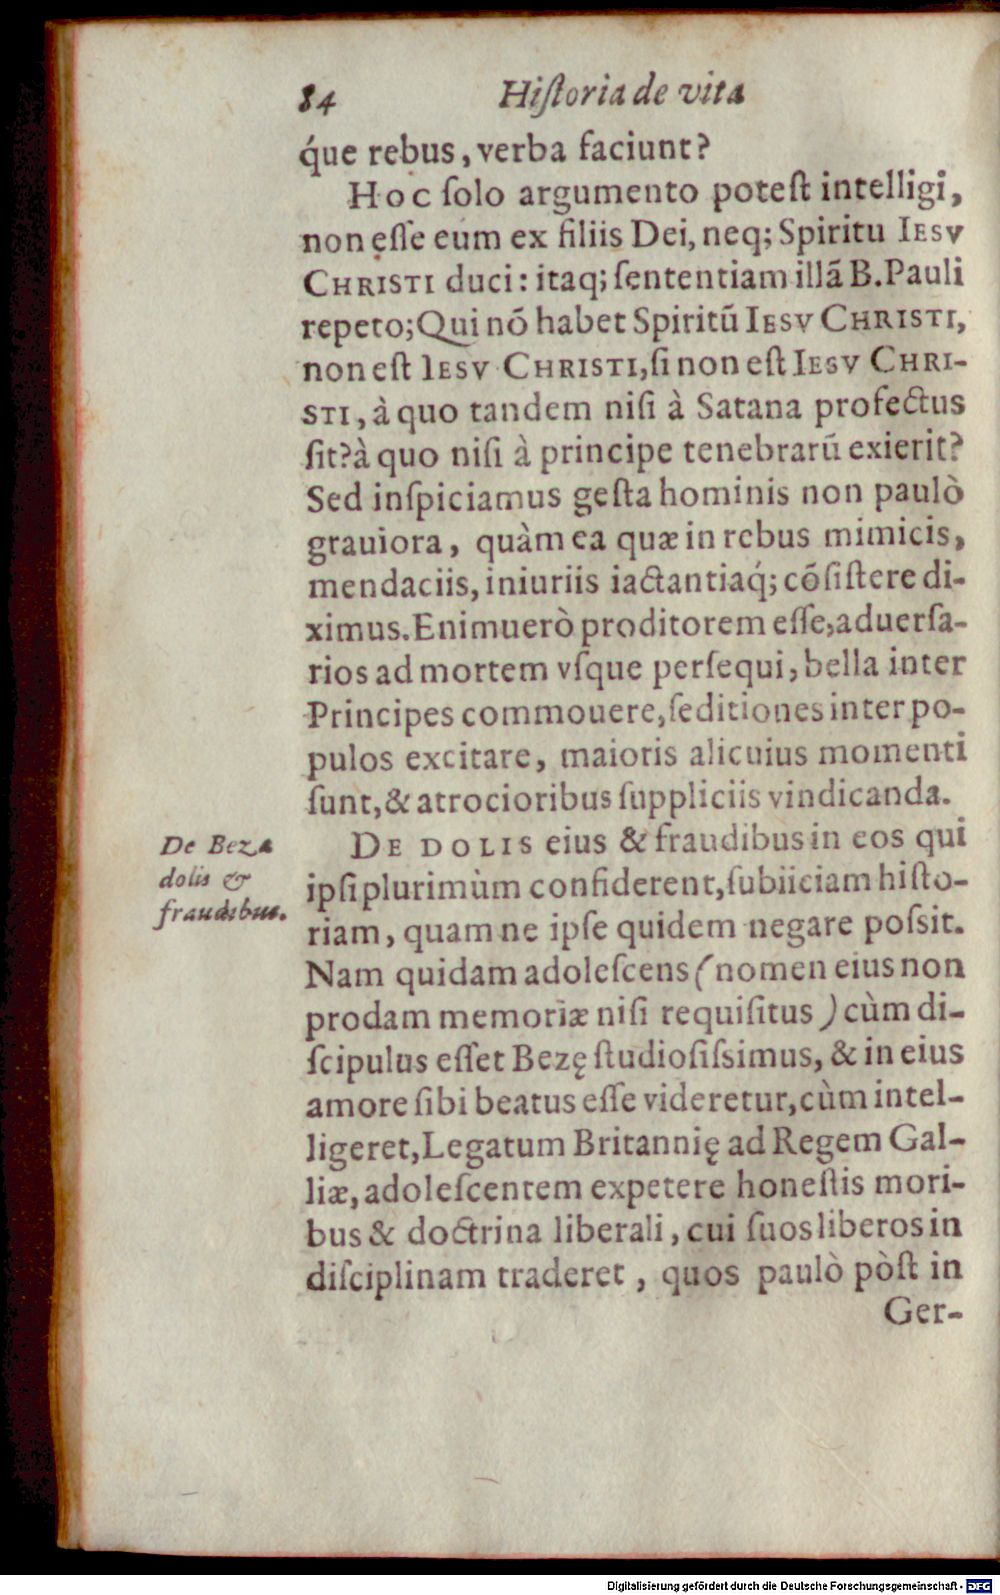 84 Hiſtoria de vita
q́ue rebus, verba faciunt?
Hoc ſolo argumento poteſt intelligi,
non eſſe eum ex filiis Dei, neq; Spiritu IESV
CHRISTI duci: itaq; ſententiam illã B. Pauli
repeto; Qui nõ habet Spiritũ IESV CHRISTI,
non eſt IESV CHRISTI, ſi non eſt IESV CHRI-
STI, à quo tandem niſi à Satana profectus
ſit? à quo niſi à principe tenebrarũ exierit?
Sed inſpiciamus geſta hominis non paulò
grauiora, quàm ea quæ in rebus mimicis,
mendaciis, iniuriis iactantiaq́; cõſiſtere di-
ximus. Enimuerò proditorem eſſe, aduerſa-
rios ad mortem vſque perſequi, bella inter
Principes commouere, ſeditiones inter po-
pulos excitare, maioris alicuius momenti
ſunt, & atrocioribus ſuppliciis vindicanda.
De Beza
dolis &
fraudibus.
DE DOLIS eius & fraudibus in eos qui
ipſi plurimùm confiderent, ſubiiciam hiſto-
riam, quam ne ipſe quidem negare poſsit.
Nam quidam adoleſcens (nomen eius non
prodam memoriæ niſi requiſitus) cùm di-
ſcipulus eſſet Bezę ſtudioſiſsimus, & in eius
amore ſibi beatus eſſe videretur, cùm intel-
ligeret, Legatum Britannię ad Regem Gal-
liæ, adoleſcentem expetere honeſtis mori-
bus & doctrina liberali, cui ſuos liberos in
diſciplinam traderet, quos paulò pòſt in
Ger-
Digitalisierung gefördert durch die Deutsche Forschungsgemeinschaft - DFG